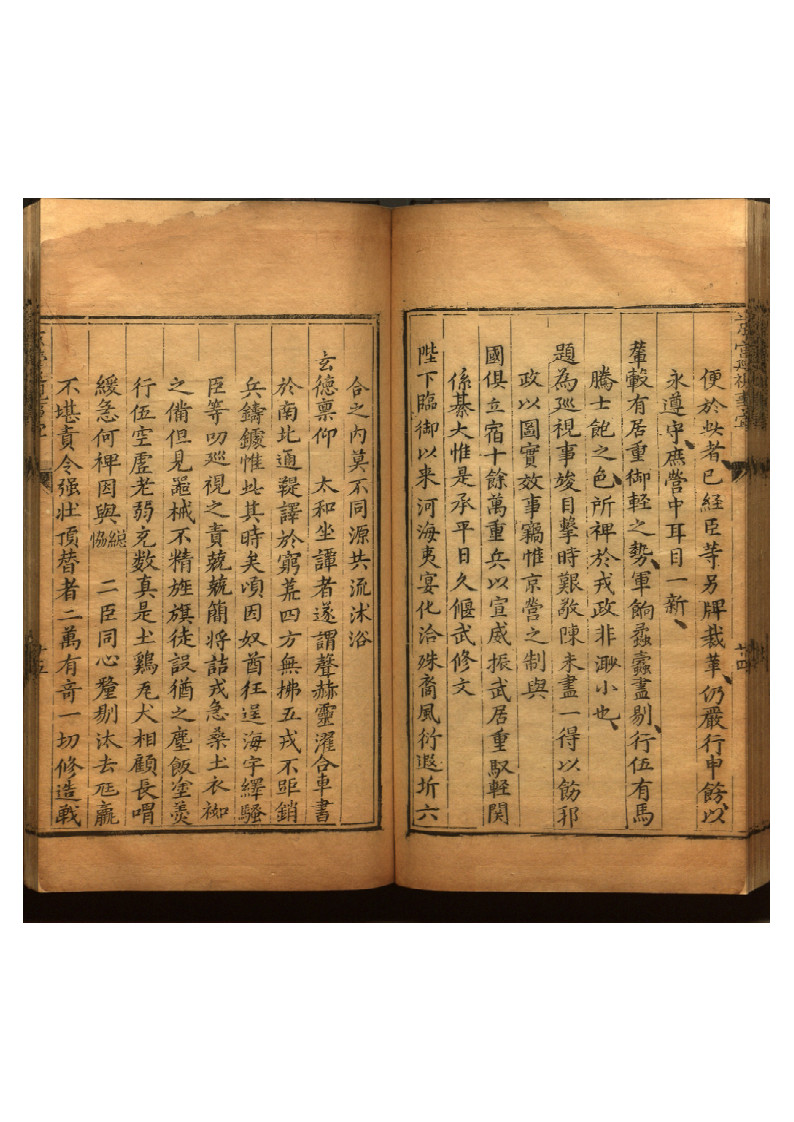 便於此者已經臣等另牌裁革仍嚴行申飭以
永遵守庶營中耳目一新
輦轂有居重御輕之勢軍餉蠹蠹盡剔行伍有馬
騰士飽之色所裨於戎政非渺小也
題為廵視事竣目擊時艱敬陳未盡一得以飭邦
政以圖實效事竊惟京營之制與
國俱立宿十餘萬重兵以宣威振武居重馭輕関
係綦大惟是承平日久偃武修文
陛下臨御以来河海夷宴化洽殊裔風衍遐折六
廿四
合之内莫不同源共流沐浴
玄德禀仰 太和坐譚者遂謂聲赫靈濯合車書
於南北通鞮譯於窮荒四方無拂五戎不距銷
兵鑄鐻惟此其時矣頃因奴酋狂逞海宇繹騷
臣等叨廵視之責兢兢簡將詰戎急桑土衣袽
之備但見噐械不精旌旗徒設猶之塵飯塗羮
行伍空虛老弱充數真是土鷄瓦犬相顧長喟
緩急何裨因與總恊 二臣同心釐剔汰去尫羸
不堪責令强壮頂替者二萬有奇一切修造戰
廿五